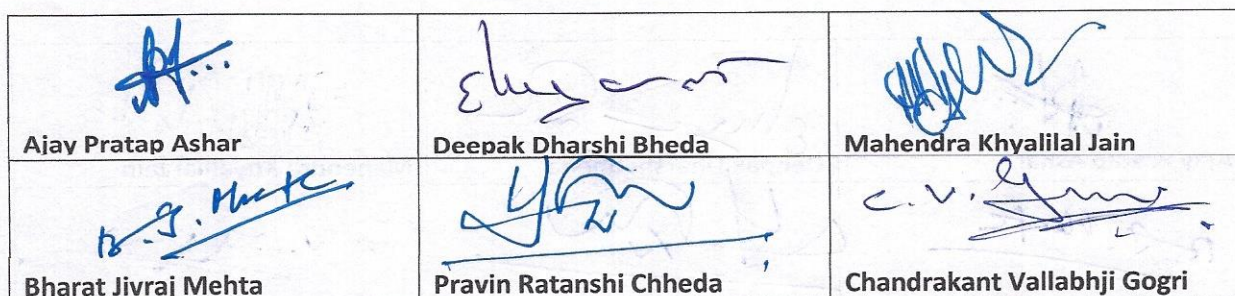 Ajay Pratap Ashar
Deepak Dharshi Bheda
Mahendra Khyalilal Jain
B. J. Mehta
Bharat Jivraj Mehta
Pravin Ratanshi Chheda
C. V.
Chandrakant Vallabhji Gogri